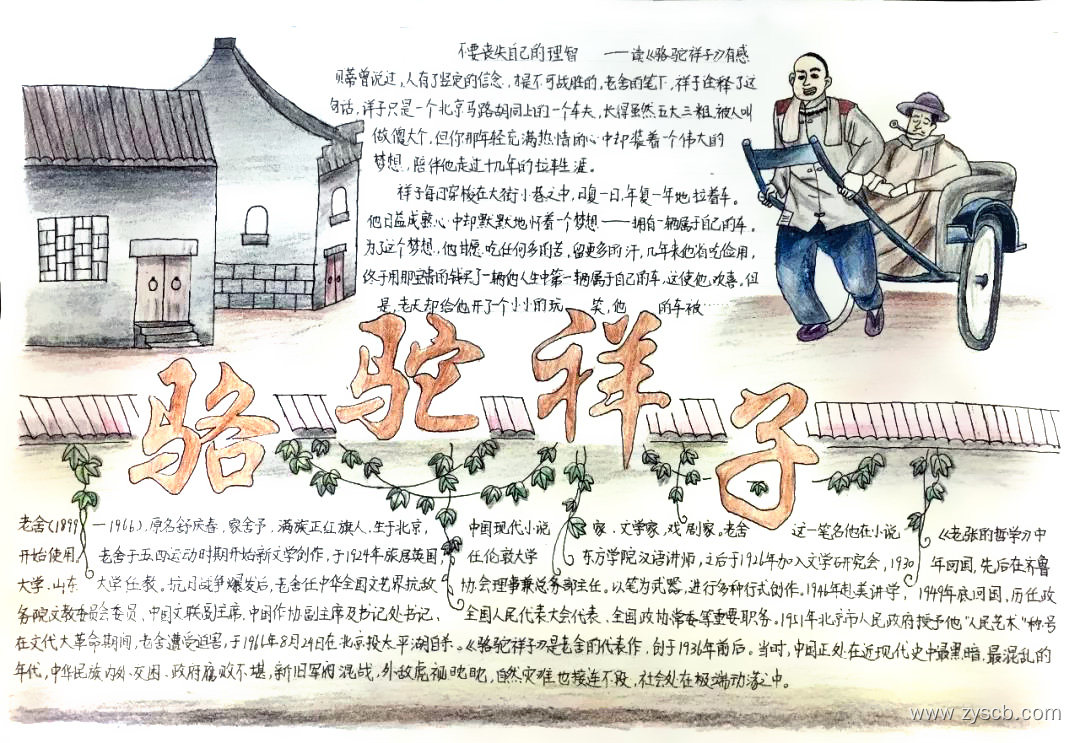 不要丧失自己的理智 ——读《骆驼祥子》有感
贝蒂曾说过,人有了坚定的信念,才是不可战胜的,老舍的笔下,祥子诠释了这
句话,祥子只是一个北京马路胡同上的一个车夫,长得虽然五大三粗,被人叫
做傻大个,但你那年轻充满热情的心中却装着一个伟大的
梦想,陪伴他走过十几年的拉车生涯。
祥子每日穿梭在大街小巷之中,日复一日,年复一年地拉着车。
他日益成熟心中却默默地怀着一个梦想——拥有一辆属于自己的车。
为了这个梦想,他甘愿吃任何多的苦,留更多的汗,几年来他省吃俭用,
终于用那坚着的钱买了一辆他人生中第一辆属于自己的车,这使他欢喜。但
是,老天却给他开了个小小的玩笑,他的车被……
骆驼祥子
老舍(1899—1966),原名舒庆春,字舍予,满族正红旗人,生于北京,中国现代小说家、文学家、戏剧家。老舍这一笔名他在小说《老张的哲学》中
开始使用。老舍于五四运动时期开始新文学创作,于1924年旅居英国,任伦敦大学东方学院汉语讲师,之后于1926年加入文学研究会,1930年回国,先后在齐鲁
大学、山东大学任教。抗日战争爆发后,老舍任中华全国文艺界抗敌协会理事兼总务部主任。以笔为武器,进行多种行式创作。1946年赴美讲学,1949年底回国,历任政
务院文教委员会委员,中国文联副主席,中国作协副主席及书记处书记、全国人民代表大会代表、全国政协常委等重要职务。1951年北京市人民政府授予他"人民艺术"称号
在文代大革命期间,老舍遭受迫害,于1966年8月24日在北京投太平湖自杀。《骆驼祥子》是老舍的代表作,创于1936年前后。当时,中国正处在近现代史中最黑暗,最混乱的
年代,中华民族内外交困、政府腐败不堪,新旧军阀混战,外敌虎视眈眈,自然灾难也接连不段,社会处在极端动荡之中。
www.zyscb.com